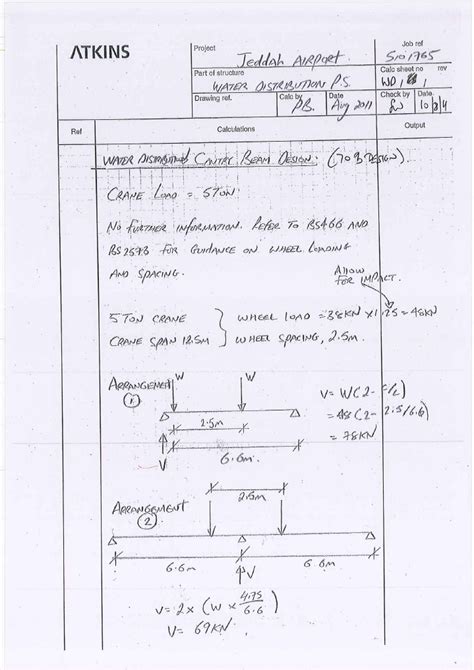 ATKINS
Project
Jeddah Airport
Job ref
5101765
Part of structure
WATER DISTRIBUTION P.S.
Calc sheet no rev
WD/ 1
Drawing ref.
Calc by
PB.
Date
Aug 2011
Check by
Date
Ref
Calculations
Output
WATER DISTRIBUTION GANTRY BEAM DESIGN: (TO B DESIGN).
CRANE LOAD = 5TON.
NO FURTHER INFORMATION. REFER TO BS466 AND
BS2573 FOR GUIDANCE ON WHEEL LOADING
AND SPACING.
ALLOW
FOR IMPACT.
5 TON CRANE } WHEEL LOAD = 38KN x 1.25 = 48KN
CRANE SPAN 12.5M } WHEEL SPACING, 2.5M.
ARRANGEMENT
1
W W
2.5m
V
6.6m.
V = W(2 - c/L)
= 48(2 - 2.5/6.6)
= 78KN
ARRANGEMENT
2
2.5m
6.6m 6.6m
V
V = 2 x (W x 4.75/6.6)
V = 69KN.